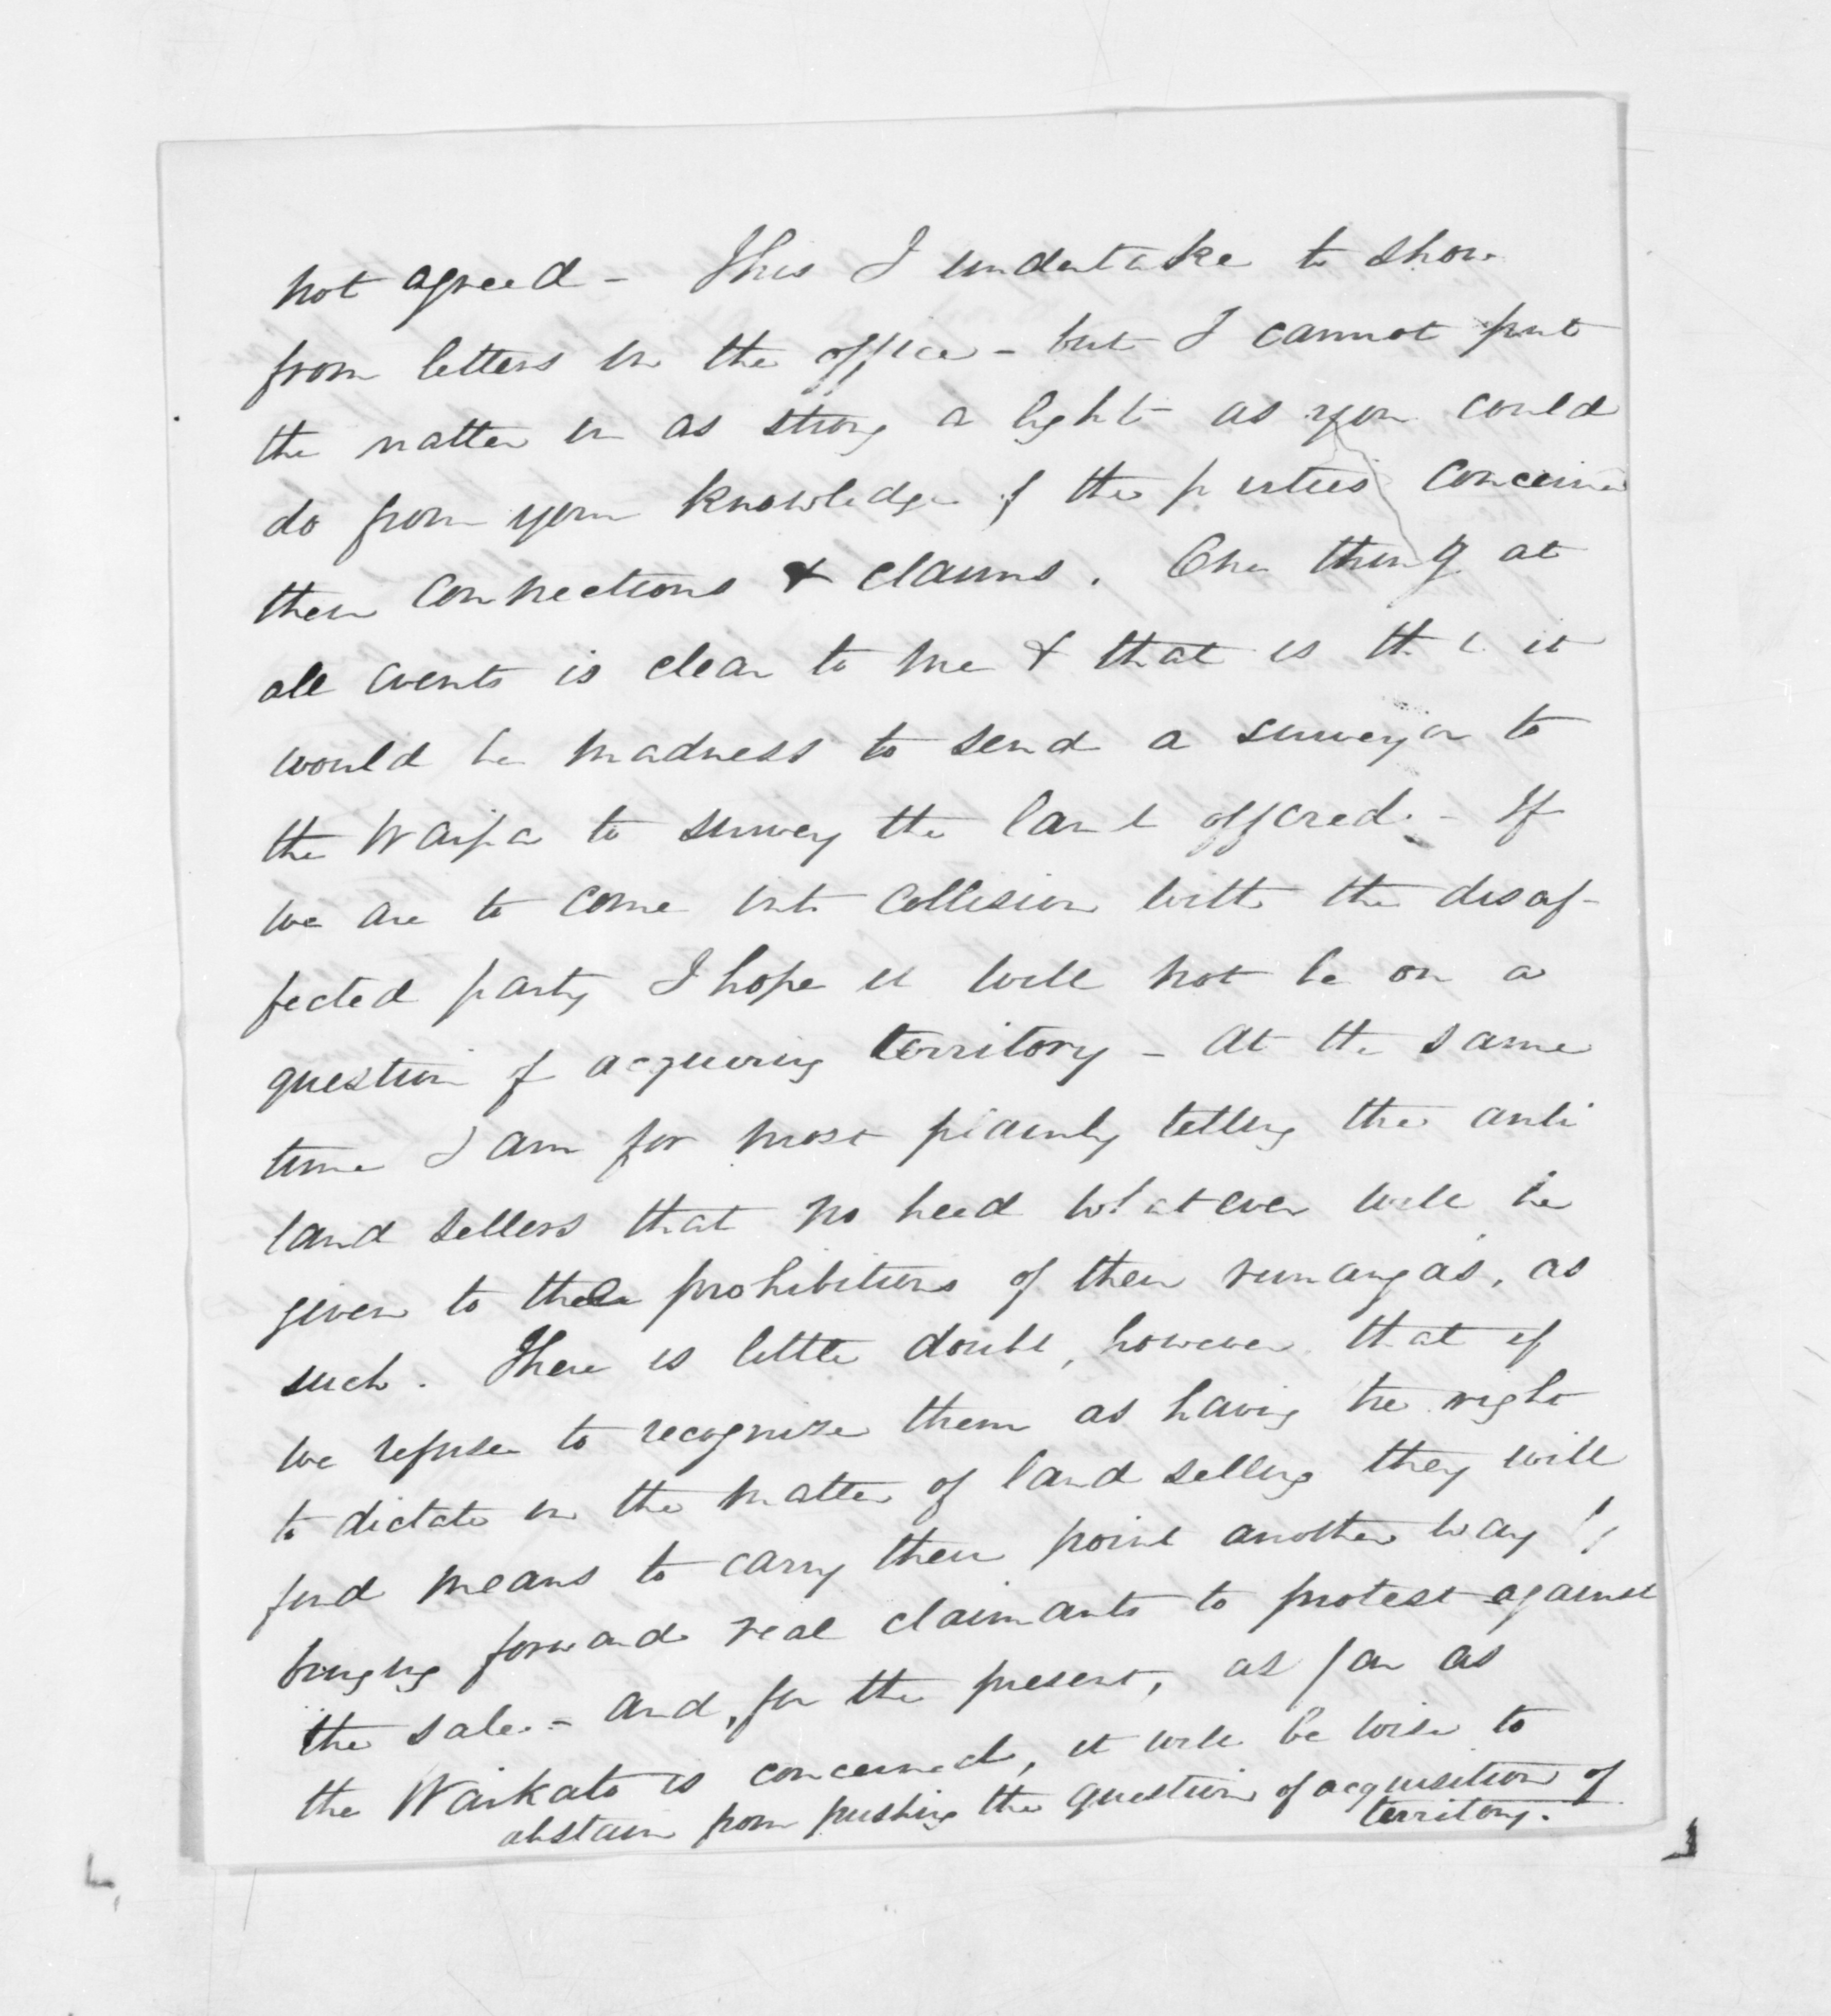 not agreed - This I undertake to show
from letters in the office - but I cannot put
the matter in as strong a light as you could
do from your knowledge of the parties concerned
their connections & claims. One thing at
all events is clear to me & that is that it
would be madness to send a surveyor to
the Waipa to survey the land offered. - If
we are to come into collision with the disaf-
fected party I hope it will not be on a
question of acquiring territory - At the same
time I am for most plainly telling the anti
land sellers that no heed whatever will be
given to the prohibitions of their runangas, as
such. There is little doubt, however that if
we refuse to recognize them as having the right
to dictate in the matter of land selling they will
find means to carry their point another way by
bringing forward real claimants to protest against
the sale. - And, for the present, as far as
the Waikato is concerned, it will be wise to
abstain from pushing the question of acquisition of
territory.